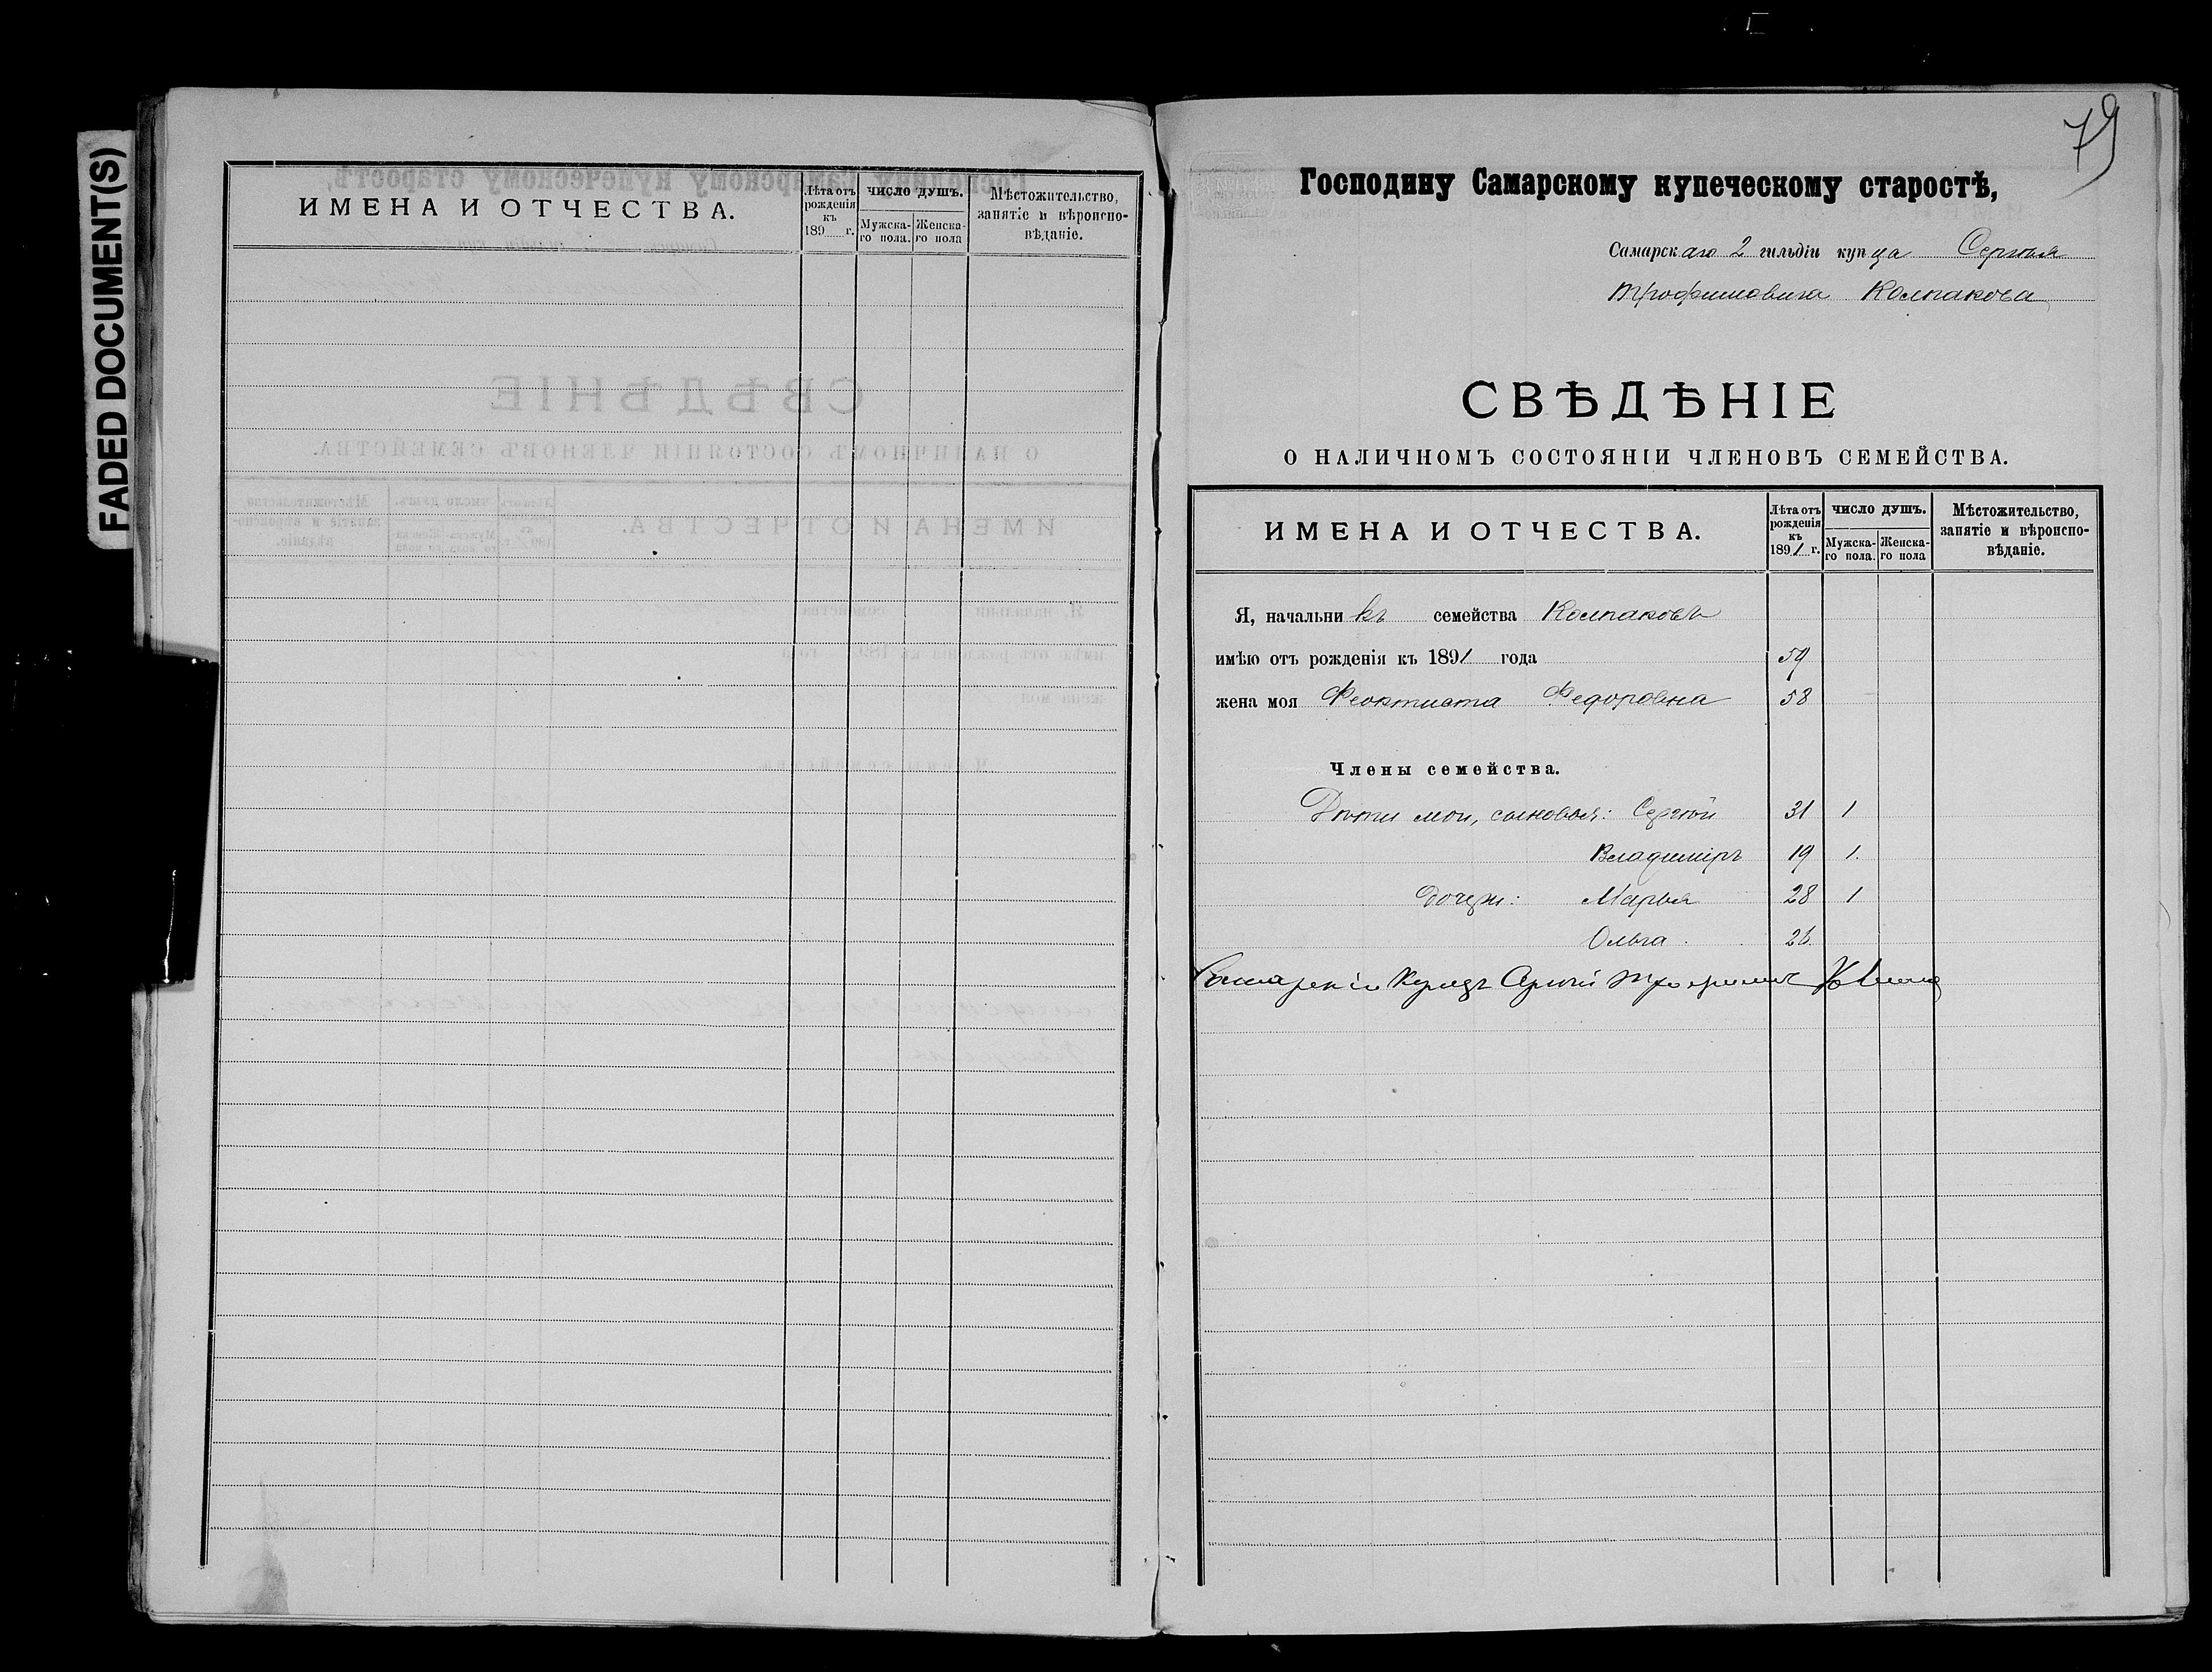 FADED DOCUMENT(S)
ИМЕНА И ОТЧЕСТВА.
Лѣта отъ рожденія къ 189 г.
ЧИСЛО ДУШЪ.
Мужска-го пола.
Женска-го пола
Мѣстожительство, занятіе и вѣроиспо-вѣданіе.
79
Господину Самарскому купеческому старостѣ,
Самарскаго 2 гильдіи купца Сергѣя
Трофимовича Колпакова
СВѢДѢНІЕ
О НАЛИЧНОМЪ СОСТОЯНІИ ЧЛЕНОВЪ СЕМЕЙСТВА.
ИМЕНА И ОТЧЕСТВА.
Лѣта отъ рожденія къ 1891 г.
ЧИСЛО ДУШЪ.
Мужска-го пола.
Женска-го пола
Мѣстожительство, занятіе и вѣроиспо-вѣданіе.
Я, начальникъ семейства Колпаковъ
имѣю отъ рожденія къ 1891 года 59
жена моя Феоктиста Федоровна 58
Члены семейства.
Дѣти мои, сыновья: Сергѣй 31 1
Владиміръ 19 1.
Дочери: Марья 28 1
Ольга. 26.
Самарскій Купецъ Сергѣй